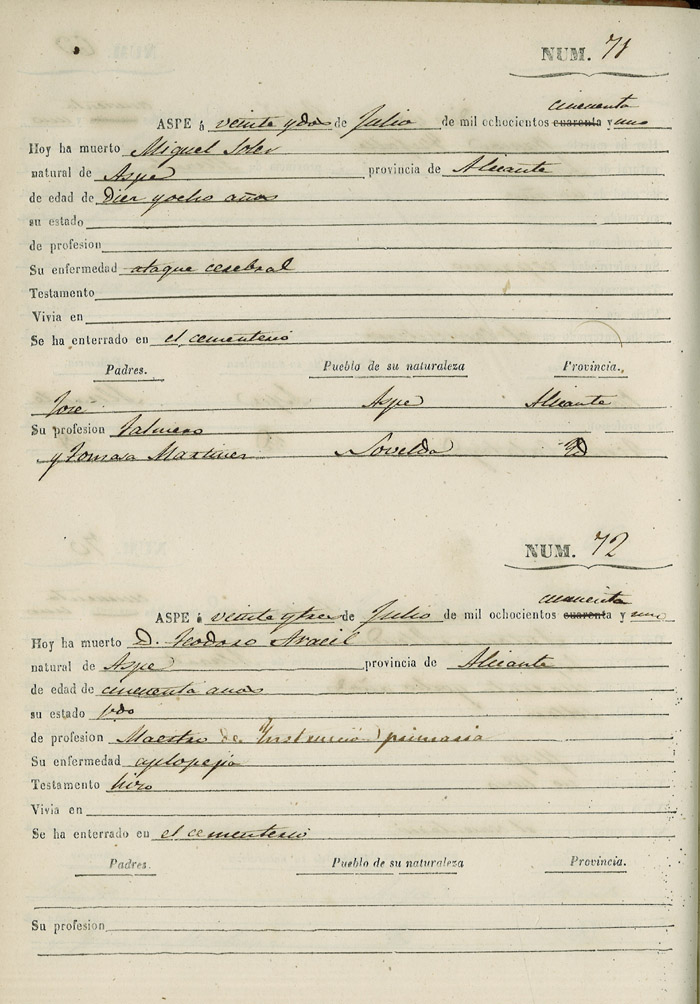 NUM. 71
cincuenta
ASPE á veinte y dos de Julio de mil ochocientos cuarenta y uno
Hoy ha muerto Miguel Soler
natural de Aspe provincia de Alicante
de edad de Diez y ocho años
su estado
de profesion
Su enfermedad ataque cerebral
Testamento
Vivia en
Se ha enterrado en el cementerio
Padres. Pueblo de su naturaleza Provincia.
José Aspe Alicante
Su profesion
y Tomasa Martinez Novelda Yd
NUM. 72
cincuenta
ASPE á veinte y tres de Julio de mil ochocientos cuarenta y uno
Hoy ha muerto D. Teodoro Aracil
natural de Aspe provincia de Alicante
de edad de cincuenta años
su estado
de profesion Maestro de Instruccion primaria
Su enfermedad aplopegia
Testamento hizo
Vivia en
Se ha enterrado en el cementerio
Padres. Pueblo de su naturaleza Provincia.
Su profesion